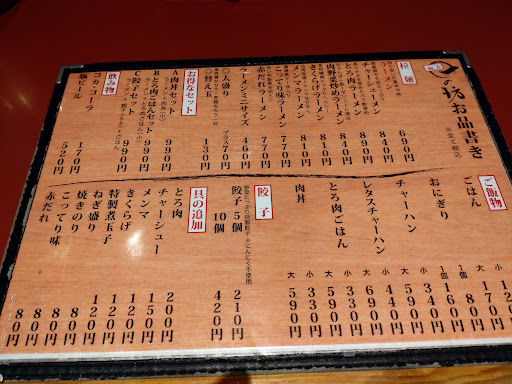 お品書き
※全て税込
拉麺
ラーメン 690円
チャーシューメン 890円
とろ肉ラーメン 890円
肉野菜炒めラーメン 840円
きくらげラーメン 810円
メンマラーメン 810円
こってり味ラーメン 770円
赤だれラーメン 770円
ラーメンミニサイズ 460円
大盛り プラス70円
替え玉 130円
お得なセット
A肉丼セット 990円
Bとろ肉ごはんセット 990円
C餃子セット 990円
飲み物
コカ・コーラ 170円
瓶ビール 520円
ご飯物
ごはん
小 120円
大 170円
おにぎり
1個 80円
2個 160円
チャーハン
小 440円
大 590円
レタスチャーハン
小 540円
大 690円
とろ肉ごはん
小 330円
大 590円
肉丼
小 330円
大 590円
餃子
※にんにく不使用
餃子 5個 210円
10個 420円
具の追加
とろ肉 200円
チャーシュー
メンマ 150円
きくらげ 120円
特製煮玉子 120円
ねぎ盛り 120円
焼きのり 80円
こってり味 80円
赤だれ 80円